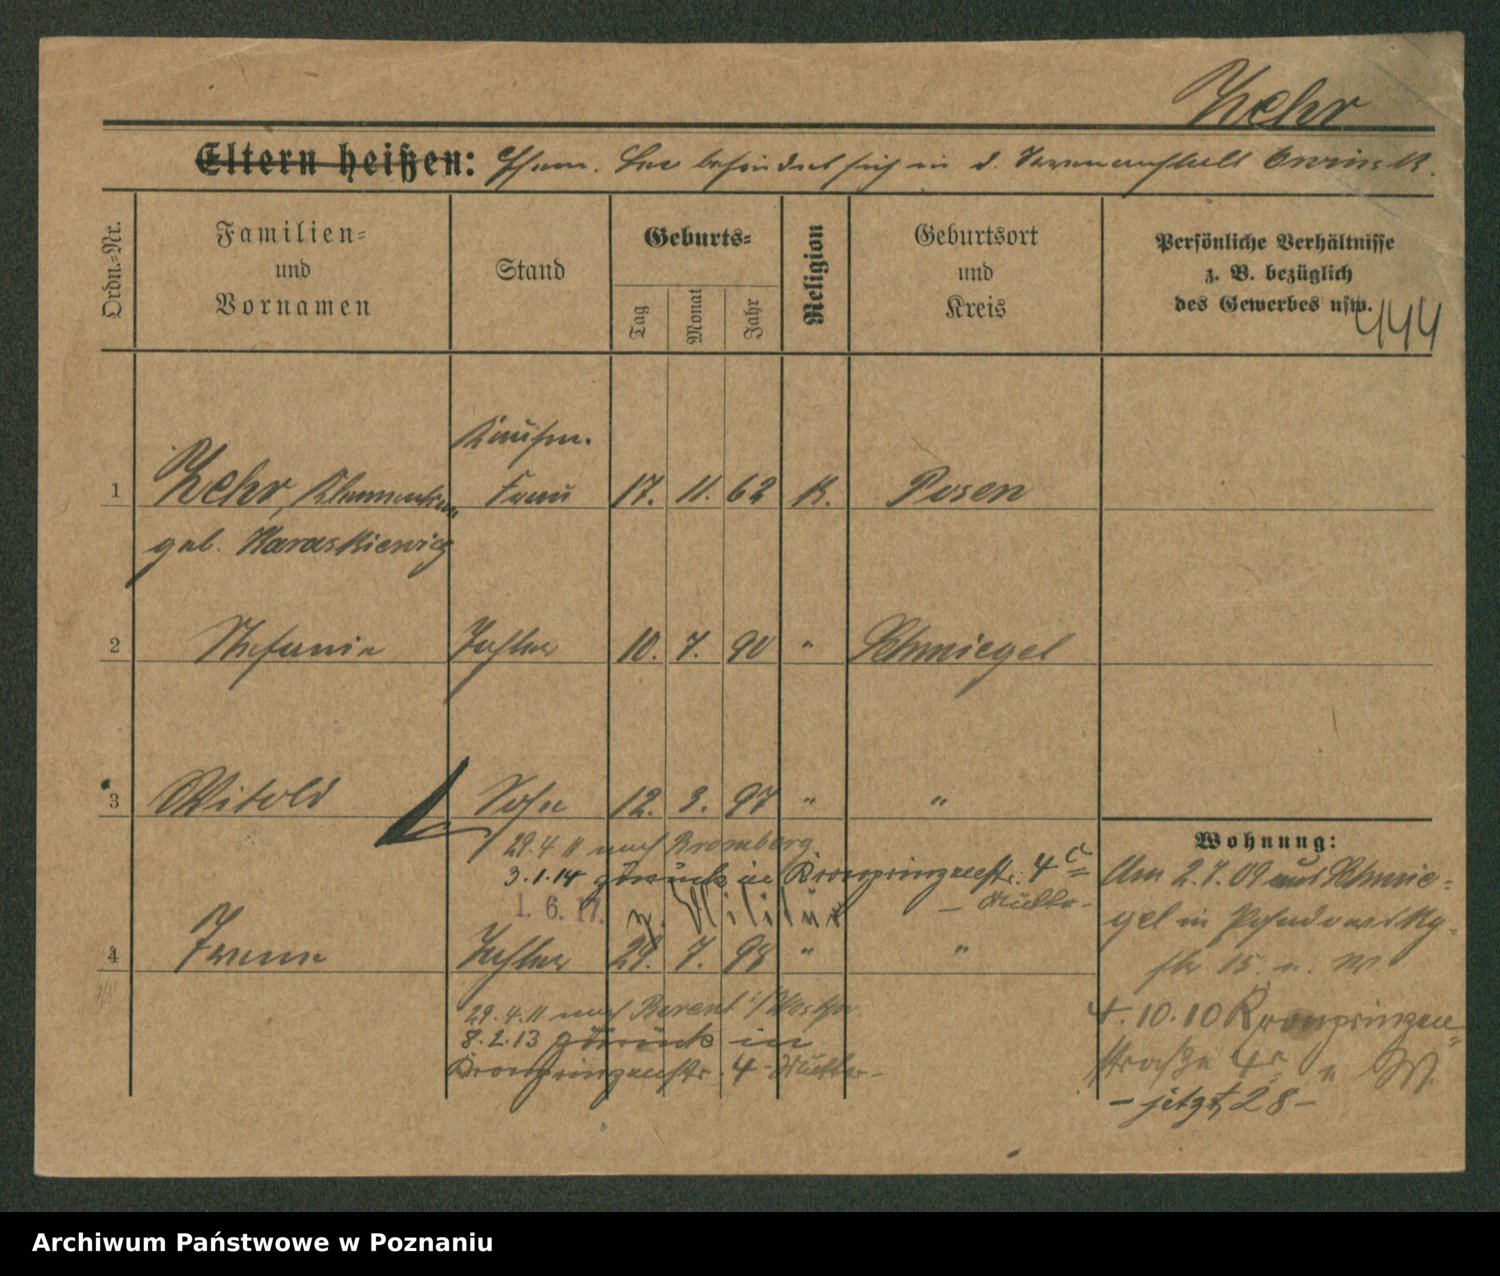 Zehr
Eltern heißen: Ehem. befindet sich in d. Irrenanstalt Owinsk.
Ordn.=Nr.
Familien=
und
Vornamen
Stand
Geburts=
Tag
Monat
Jahr
Religion
Geburtsort
und
Kreis
Persönliche Verhältnisse
z. B. bezüglich
des Gewerbes usw.
444
Kaufm.
1 Zehr, Frau 17. 11. 62 K. Posen
geb. Haraskiewicz
2 Stefanie Tochter 10. 7. 90 " Schmiegel
3 Witold Sohn 12. 3. 97 " "
29.4.11 nach Bromberg
3.1.14 zurück in Kronprinzenstr. 4 c
1. 6. 17. z. Militär – Mutter –
4 Irene Tochter 29. 7. 98 " "
29.4.11 nach Berent i/Westpr.
8.2.13 zurück in
Kronprinzenstr. 4 – Mutter –
Wohnung:
Am 2.7.09 aus Schmie=
gel in
str. 15. n. W.
4.10.10 Kronprinzen=
straße 4 n W.
– jetzt 28 –
Archiwum Państwowe w Poznaniu